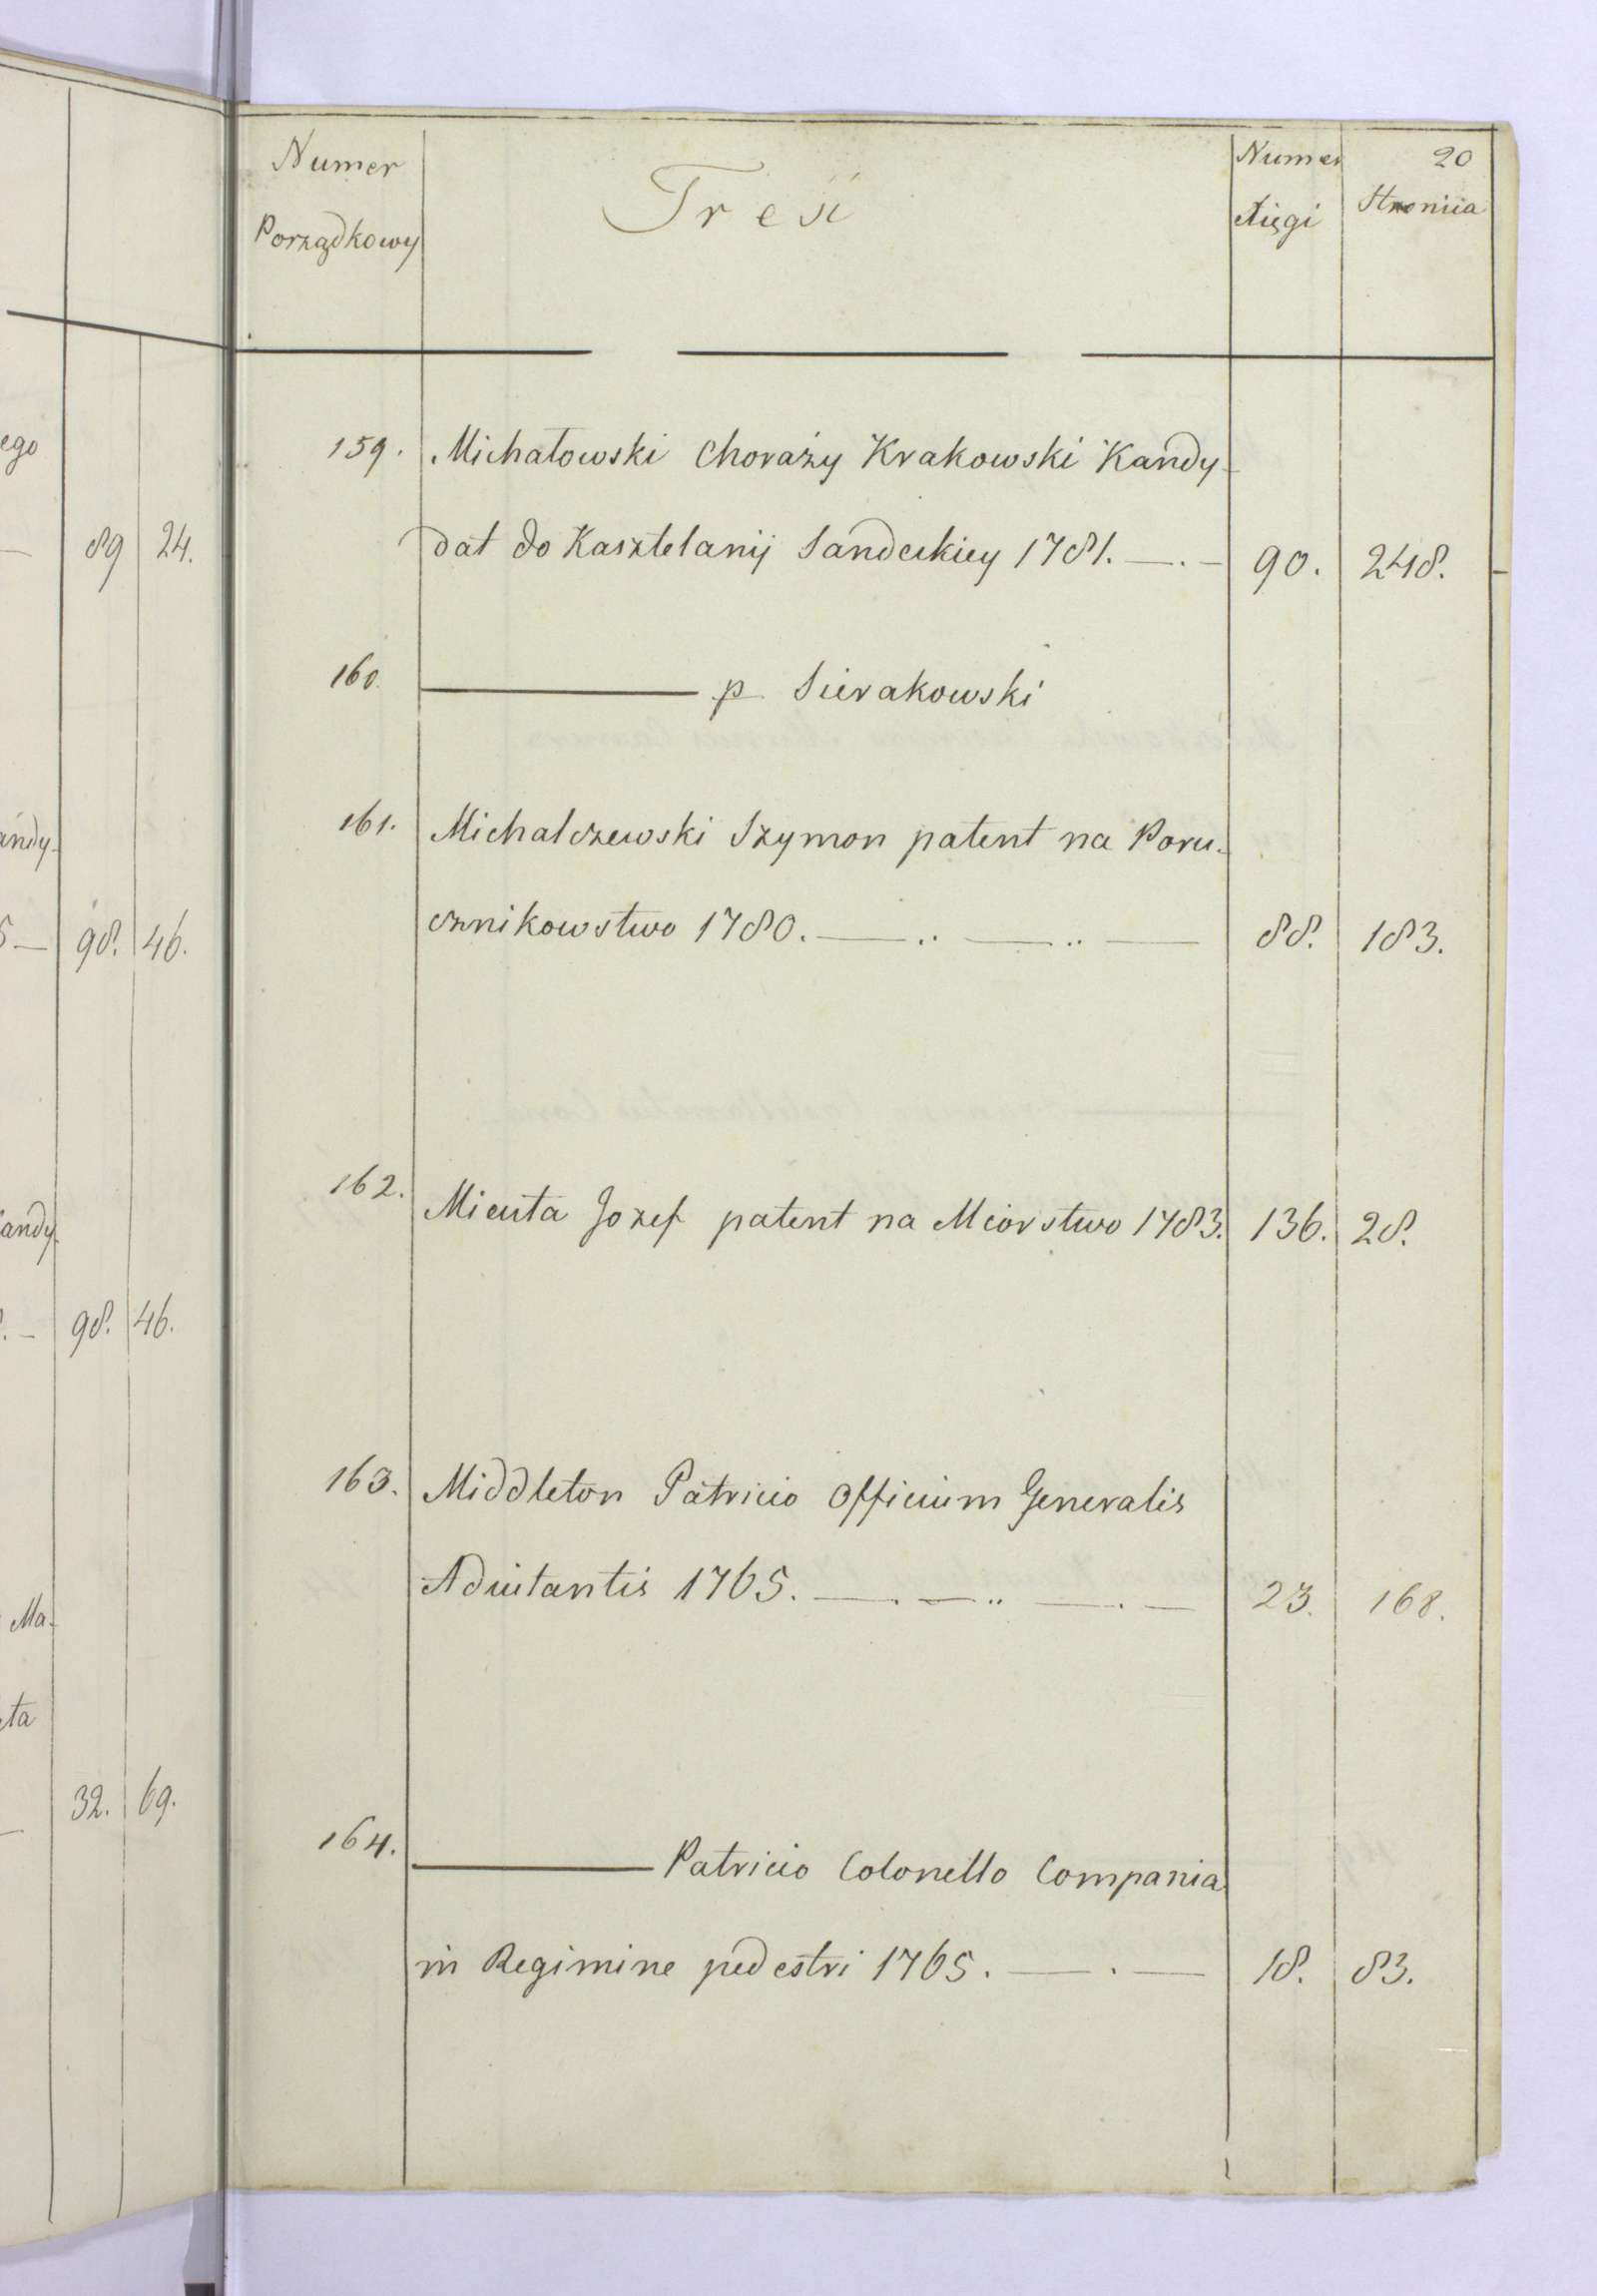 ego
89 24.
andy-
5.— 98. 46.
andy.
.— 98. 46.
Ma.
ta
32. 69.
20
Numer Treść Numer Stronica
Porządkowy Xięgi
159. Michałowski Chorąży Krakowski Kandy-
dat do Kasztelanij Sandeckiey 1781. —.— 90. 248.
160. ——— p. Sierakowski
161. Michalczewski Szymon patent na Poru-
cznikowstwo 1780. —..—..— 88. 183.
162. Mieuta Jozef patent na Miorstwo 1783. 136. 28.
163. Middleton Patricio Officium Generalis
Adiutantis 1765. —.—..—.— 23. 168.
164. ——— Patricio Colonello Compania
in Regimine pedestri 1765. —.— 18. 83.